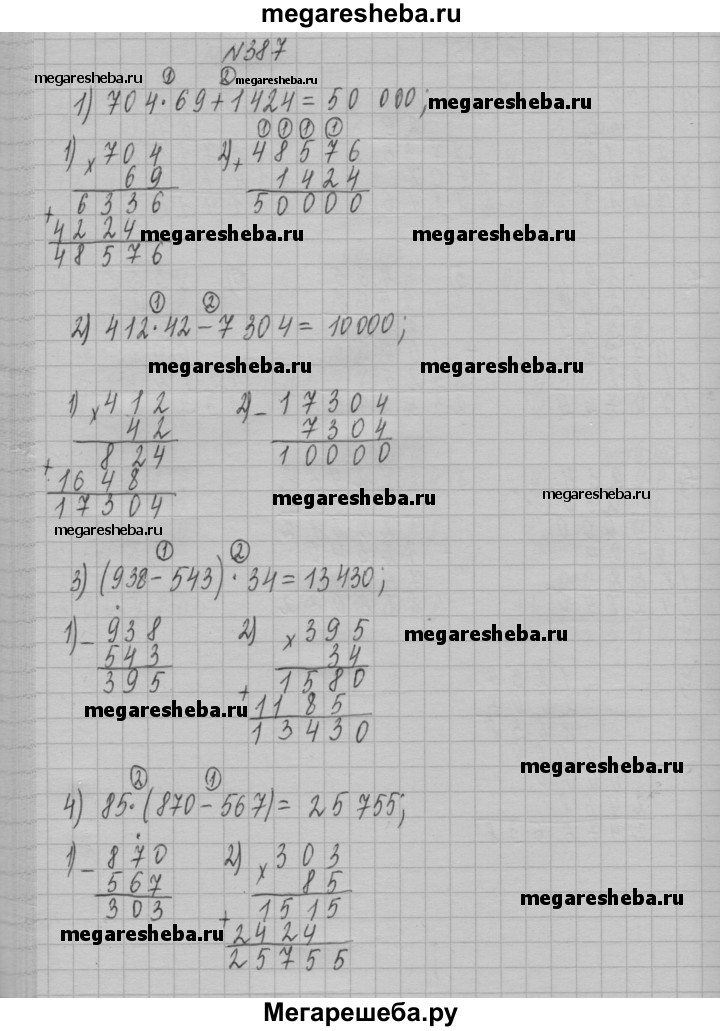 megaresheba.ru
№387
megaresheba.ru ① ② megaresheba.ru
1) 704·69+1424=50 000; megaresheba.ru
① ① ① ①
1) × 704 2) + 48576
69 1424
6336 50000
+ 4224 megaresheba.ru megaresheba.ru
48576
① ②
2) 412·42-7304=10000;
megaresheba.ru megaresheba.ru
1) × 412 2) - 17304
42 7304
824 10000
+ 1648 megaresheba.ru megaresheba.ru
17304
megaresheba.ru
① ②
3) (938-543)·34=13430;
1) - 938 2) × 395 megaresheba.ru
543 34
395 1580
megaresheba.ru + 1185
13430
megaresheba.ru
② ①
4) 85·(870-567)=25755;
1) - 870 2) × 303
567 85 megaresheba.ru
303 1515
megaresheba.ru + 2424
25755
Мегарешеба.ру